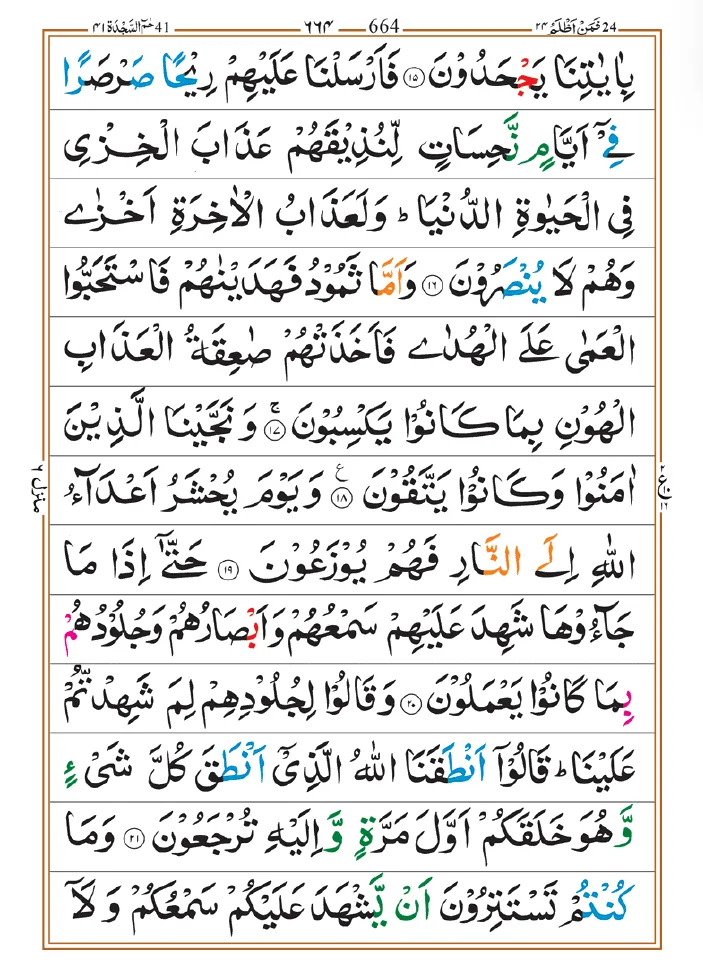 24 فَمَنْ اَظْلَمُ ٢٤
664 ٦٦٤
41 حٰمٓ السَّجْدَة ٤١
بِاٰيٰتِنَا يَجْحَدُوْنَ ١٥ فَاَرْسَلْنَا عَلَيْهِمْ رِيْحًا صَرْصَرًا
فِيْٓ اَيَّامٍ نَّحِسَاتٍ لِّنُذِيْقَهُمْ عَذَابَ الْخِزْيِ
فِي الْحَيٰوةِ الدُّنْيَا ؕ وَلَعَذَابُ الْاٰخِرَةِ اَخْزٰى
وَهُمْ لَا يُنْصَرُوْنَ ١٦ وَاَمَّا ثَمُوْدُ فَهَدَيْنٰهُمْ فَاسْتَحَبُّوا
الْعَمٰى عَلَى الْهُدٰى فَاَخَذَتْهُمْ صٰعِقَةُ الْعَذَابِ
الْهُوْنِ بِمَا كَانُوْا يَكْسِبُوْنَ ۚ ١٧ وَنَجَّيْنَا الَّذِيْنَ
اٰمَنُوْا وَكَانُوْا يَتَّقُوْنَ ١٨ ع وَيَوْمَ يُحْشَرُ اَعْدَآءُ
اللّٰهِ اِلَى النَّارِ فَهُمْ يُوْزَعُوْنَ ١٩ حَتّٰٓى اِذَا مَا
جَآءُوْهَا شَهِدَ عَلَيْهِمْ سَمْعُهُمْ وَاَبْصَارُهُمْ وَجُلُوْدُهُمْ
بِمَا كَانُوْا يَعْمَلُوْنَ ٢٠ وَقَالُوْا لِجُلُوْدِهِمْ لِمَ شَهِدْتُّمْ
عَلَيْنَا ؕ قَالُوْٓا اَنْطَقَنَا اللّٰهُ الَّذِيْٓ اَنْطَقَ كُلَّ شَيْءٍ
وَّهُوَ خَلَقَكُمْ اَوَّلَ مَرَّةٍ وَّاِلَيْهِ تُرْجَعُوْنَ ٢١ وَمَا
كُنْتُمْ تَسْتَتِرُوْنَ اَنْ يَّشْهَدَ عَلَيْكُمْ سَمْعُكُمْ وَلَآ
منزل ٦